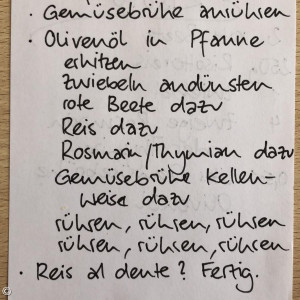 · Gemüsebrühe anrühren
· Olivenöl in Pfanne
erhitzen
Zwiebeln andünsten
rote Beete dazu
Reis dazu
Rosmarin/Thymian dazu
Gemüsebrühe Kellen-
weise dazu
rühren, rühren, rühren
rühren, rühren, rühren
· Reis al dente? Fertig.